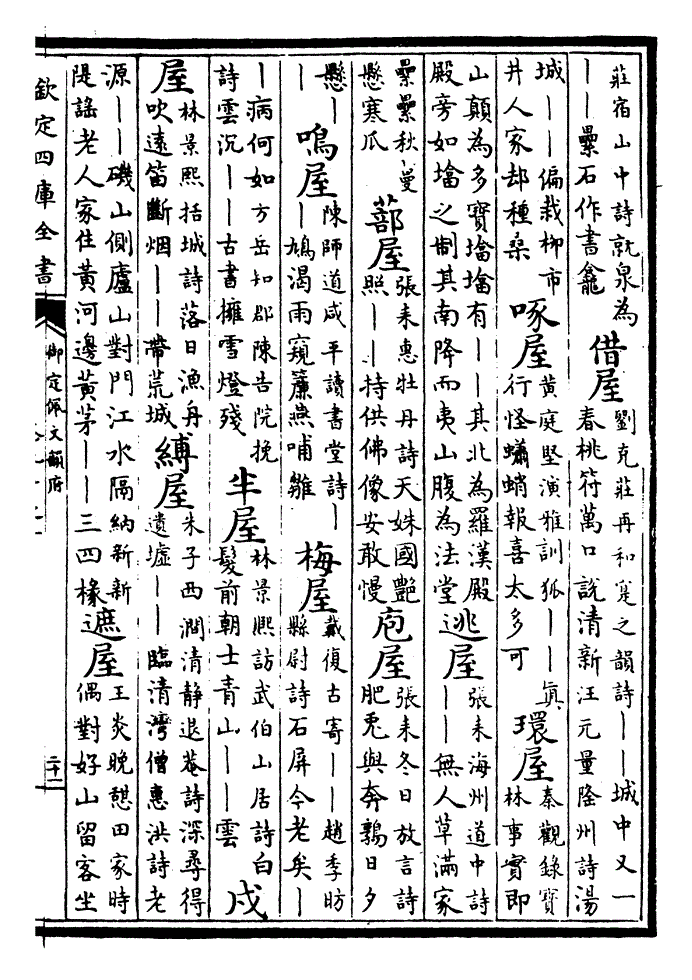 莊宿山中詩就泉為
——壘石作書龕
借屋
劉克莊再和寔之韻詩——城中又一
春桃符萬口說清新汪元量隆州詩湯
城——偏栽柳市
井人家却種桑
啄屋
黃庭堅演雅訓狐——真
行怪蠨蛸報喜太多可
環屋
秦觀錄寶
林事實即
山顛為多寶墖墖有——其北為羅漢殿
殿旁如墖之制其南降而夷山腹為法堂
逃屋
張耒海州道中詩
——無人草滿家
纍纍秋蔓
懸寒瓜
蔀屋
張耒惠牡丹詩天姝國艷
照——持供佛像安敢慢
庖屋
張耒冬日放言詩
肥兎與奔鶉日夕
懸—
—
鳴屋
陳師道咸平讀書堂詩—
—鳩渴雨窺簾燕哺雛
梅屋
戴復古寄——趙季昉
縣尉詩石屏今老矣—
—病何如方岳知郡陳告院挽
詩雲沉——古書擁雪燈殘
半屋
林景熙訪武伯山居詩白
髮前朝士青山——雲
戍
屋
林景熙括城詩落日漁舟
吹遠笛斷烟——帶荒城
縛屋
朱子西澗清静退菴詩深尋得
遺墟——臨清灣僧惠洪詩老
源——磯山側廬山對門江水隔納新新
隄謠老人家住黃河邊黃茅——三四椽
遮屋
王炎晚憩田家時
偶對好山留客坐
欽定四庫全書
御定佩文韻府
二十一